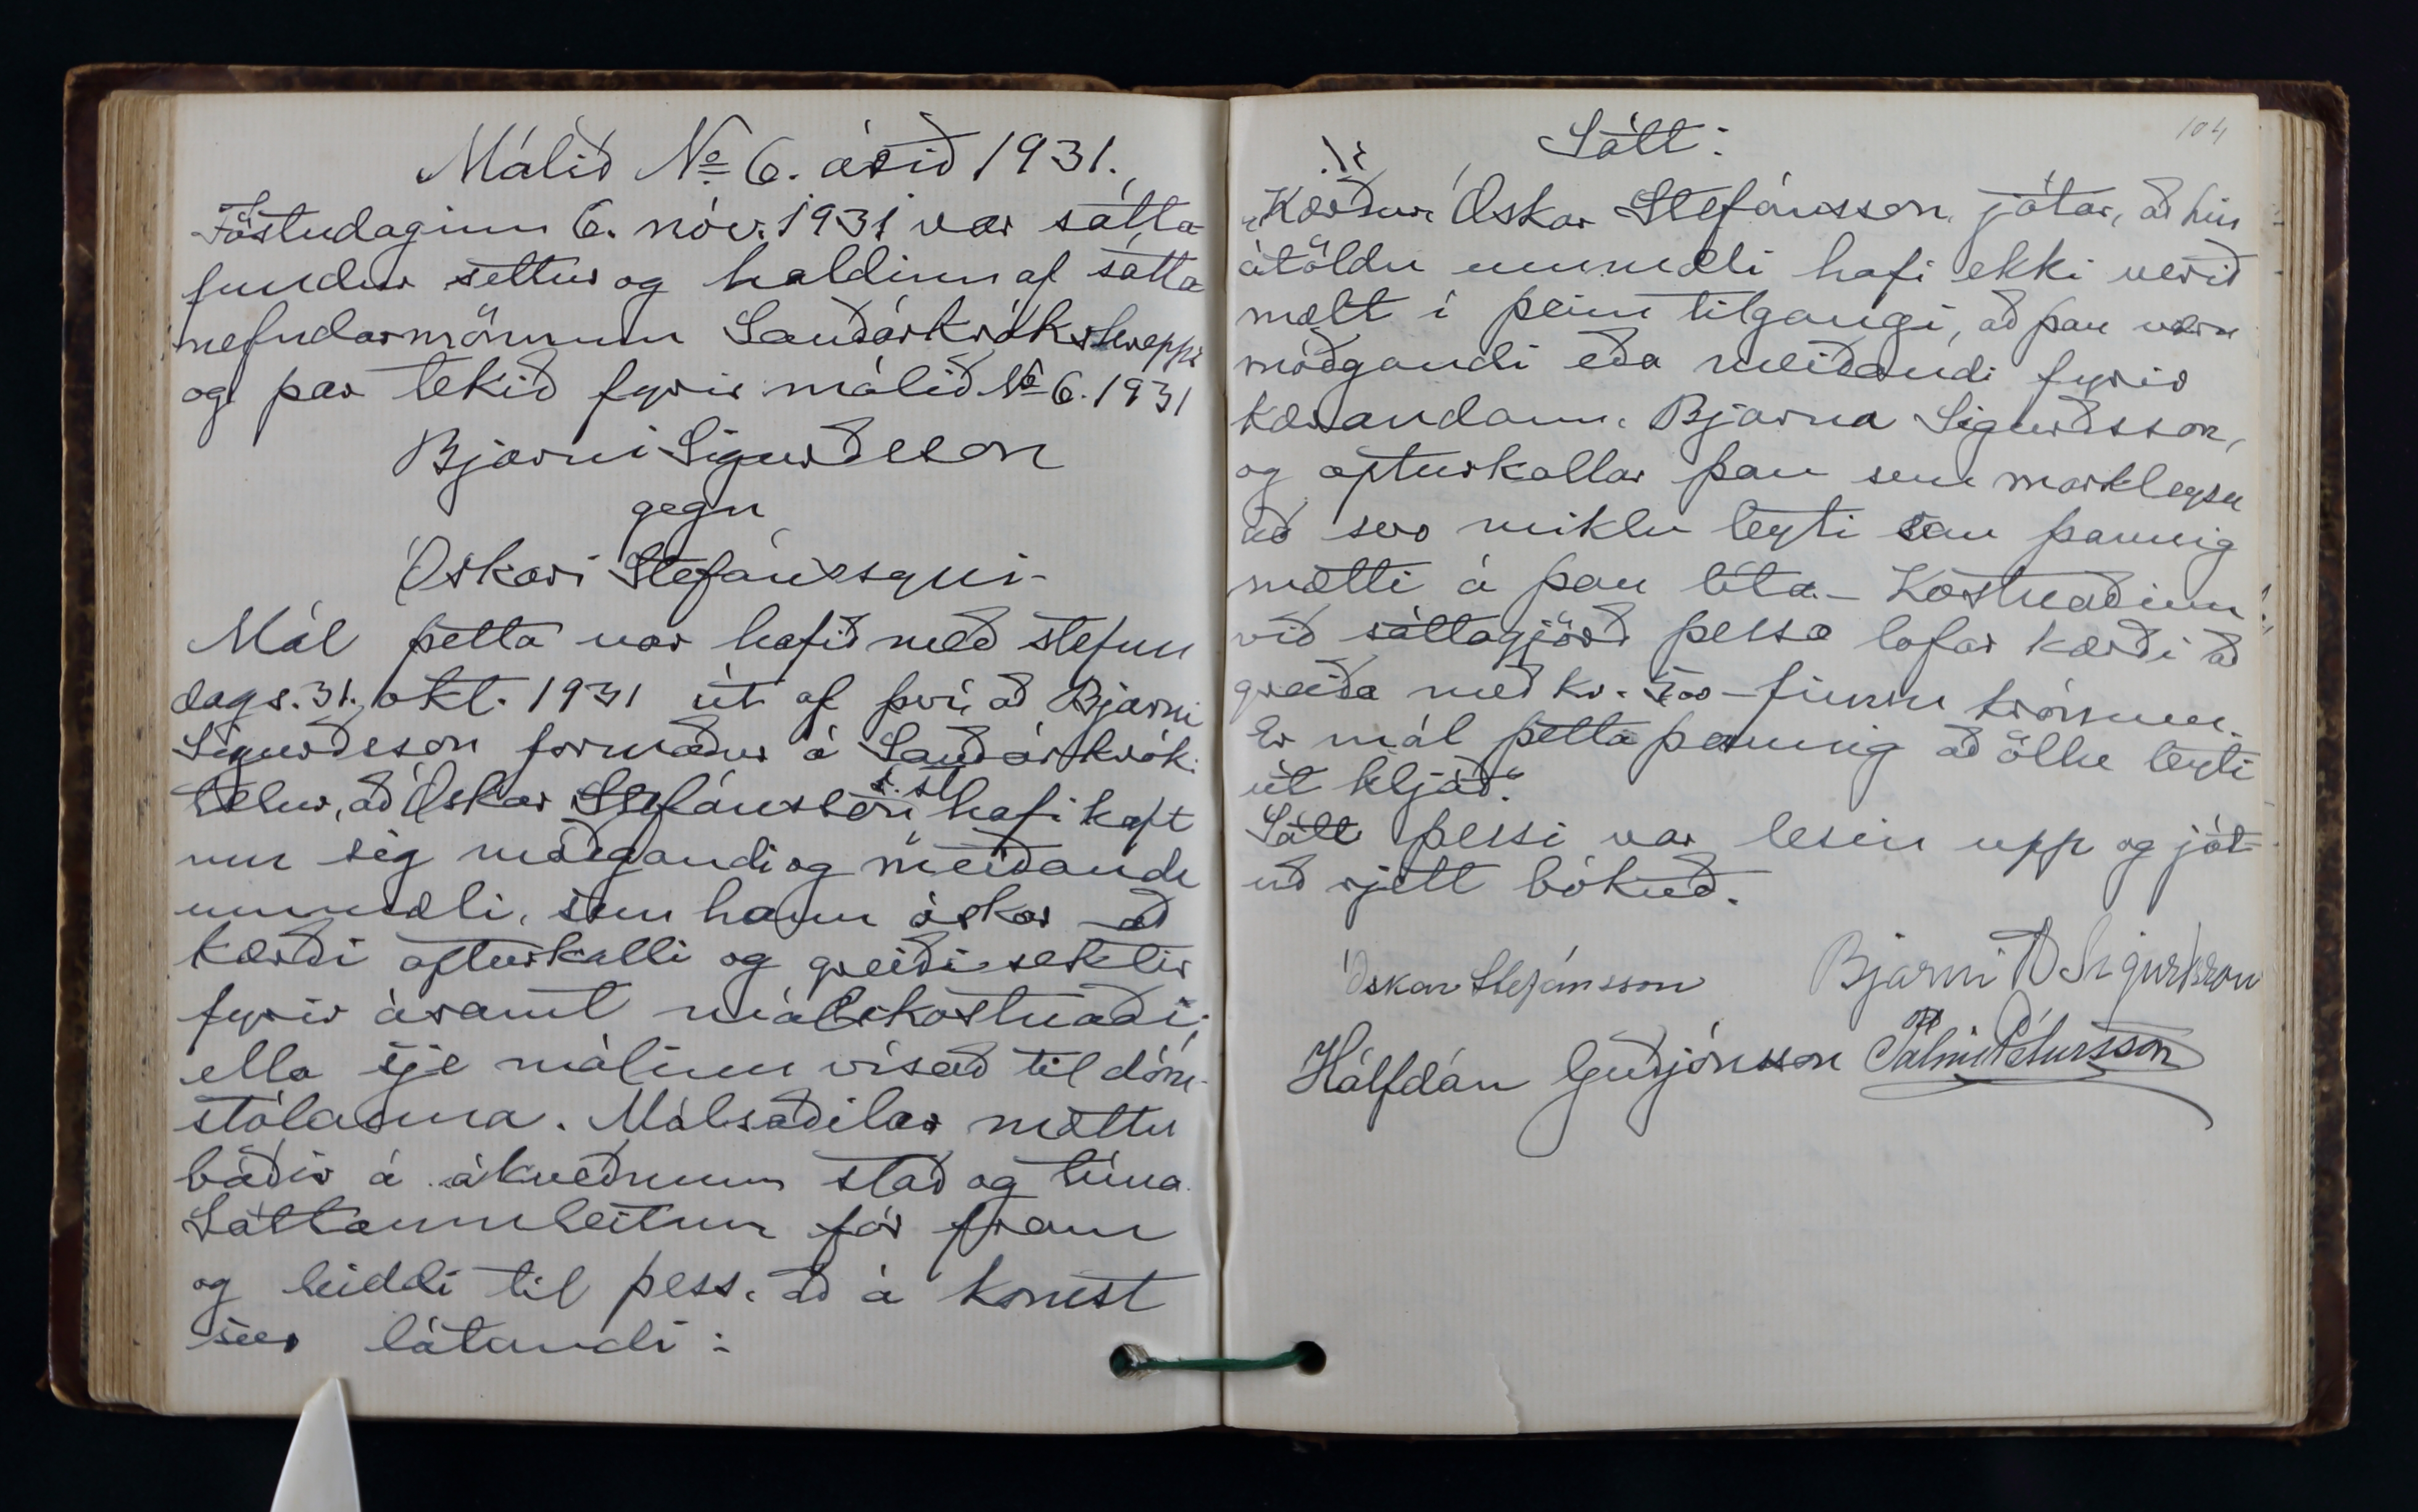 Málið № 6. árið 1931.
Föstudaginn 6. nóv. 1931 var sátta
fundur settur og haldinn af sátta
nefndarmönnum Sauðárkrókshrepps
og þar tekið fyrir málið № 6. 1931
Bjarni Sigurðsson
gegn
Óskari Stefánssyni-
Mál þetta var hafið með stefnu
dags. 31. okt. 1931 út af því, að Bjarni
Sigurðsson formaður á Sauðárkróki
telur, að Óskar Stefánsson s. st. hafi haft
um sig móðgandi og meiðandi
ummæli, sem hann óskar að
kærði afturkalli og greiði sektir
fyrir ásamt málskostnaði,
ella sje málinu vísað til dóm-
stólanna. Málsaðilar mættu
báðir á ákveðnum stað og tíma.
Sáttaumleitun fór fram
og leiddi til þess, að á komst
svo látandi:
104
Sátt:
„Kærður Óskar Stefánsson játar, að hin
átöldu ummæli hafi ekki verið
mælt í þeim tilgangi, að þau væru
móðgandi eða meiðandi fyrir
kærandann, Bjarna Sigurðsson,
og afturkallar þau sem markleysu
að svo miklu leyti sem þannig
mætti á þau líta. - Kostnaðinn
við sáttagjörð þessa lofar kærði að
greiða með kr. 5.00 - fimm krónum.
Er mál þetta þannig að öllu leyti
út kljáð."
Sátt þessi var lesin upp og ját-
uð rjett bókuð.
Óskar Stefánsson Bjarni Sigurðsson
Hálfdán Guðjónsson Pálmi Pétursson